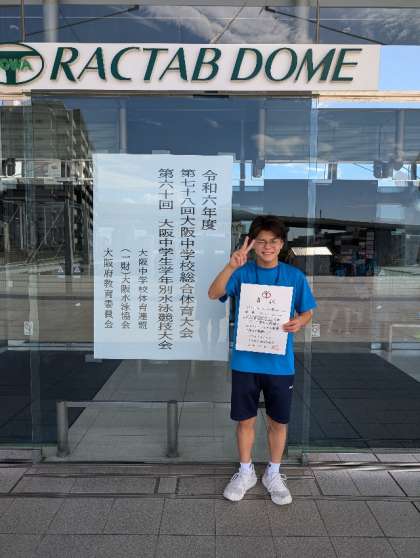 RACTAB DOME
令和六年度
第七十八回大阪中学校総合体育大会
第六十回 大阪中学生学年別水泳競技大会
大阪中学校体育連盟
(一財)大阪水泳協会
大阪府教育委員会